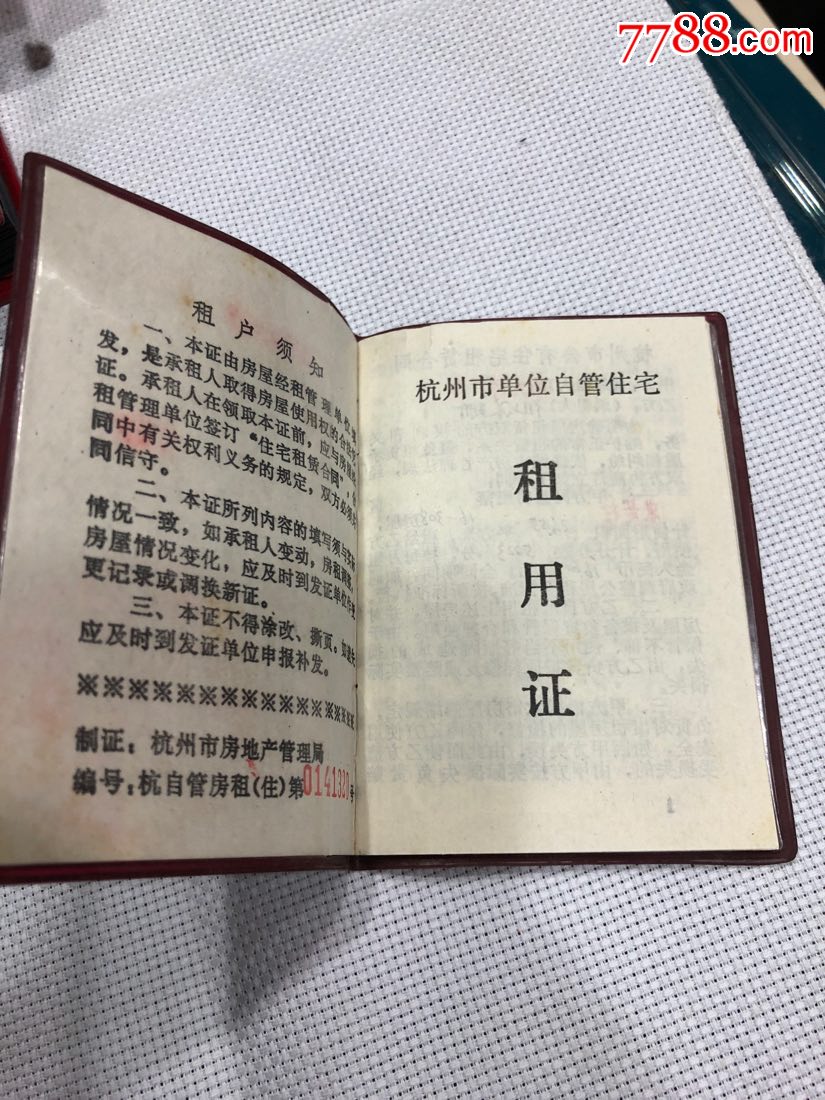 7788.com
租户须知
一、本证由房屋经租管理单位
发，是承租人取得房屋使用权的合法
证。承租人在领取本证前，应与房屋
租管理单位签订“住宅租赁合同”，
同中有关权利义务的规定，双方必须
同信守。
二、本证所列内容的填写须与实际
情况一致，如承租人变动，房租调整，
房屋情况变化，应及时到发证单位作变
更记录或调换新证。
三、本证不得涂改、撕页。如遗失
应及时到发证单位申报补发。
※※※※※※※※※※※※※※※
制证：杭州市房地产管理局
编号：杭自管房租(住)第0141320号
杭州市单位自管住宅
租
用
证
1